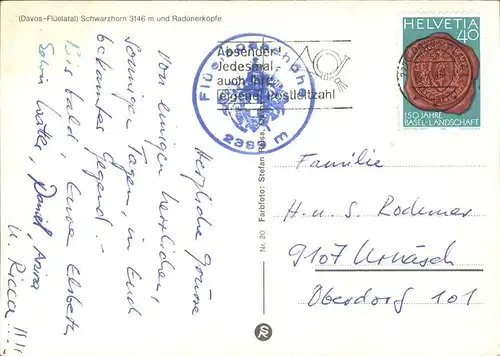 (Davos-Flüelatal) Schwarzhorn 3146 m und Radünerköpfe
Absender!
Jedesmal
auch Ihre
eigene Postleitzahl
Flüelapasshöhe
2389 m
HELVETIA
40
150 JAHRE
BASEL-LANDSCHAFT
Herzliche Grüsse
Von einigen herrlichen,
sonnigen Tagen, in Eud
bekannter Gegend!
Bis bald, Eure Elsbeth,
Daniel,
u. Ricca !!!
Nr. 20 Farbfoto: Stefan
Familie
H. u. S. Rodemer
9107 Urnäsch
Oberdorf 101